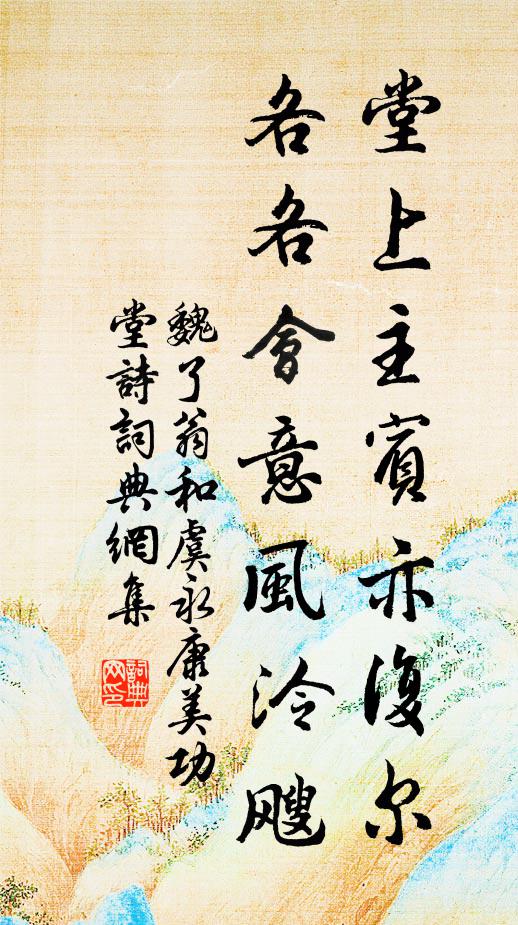 堂上主賓亦復尔
各各會意風泠飕
魏了翁和虞永康美功
堂詩詞典網集
詞典
网印